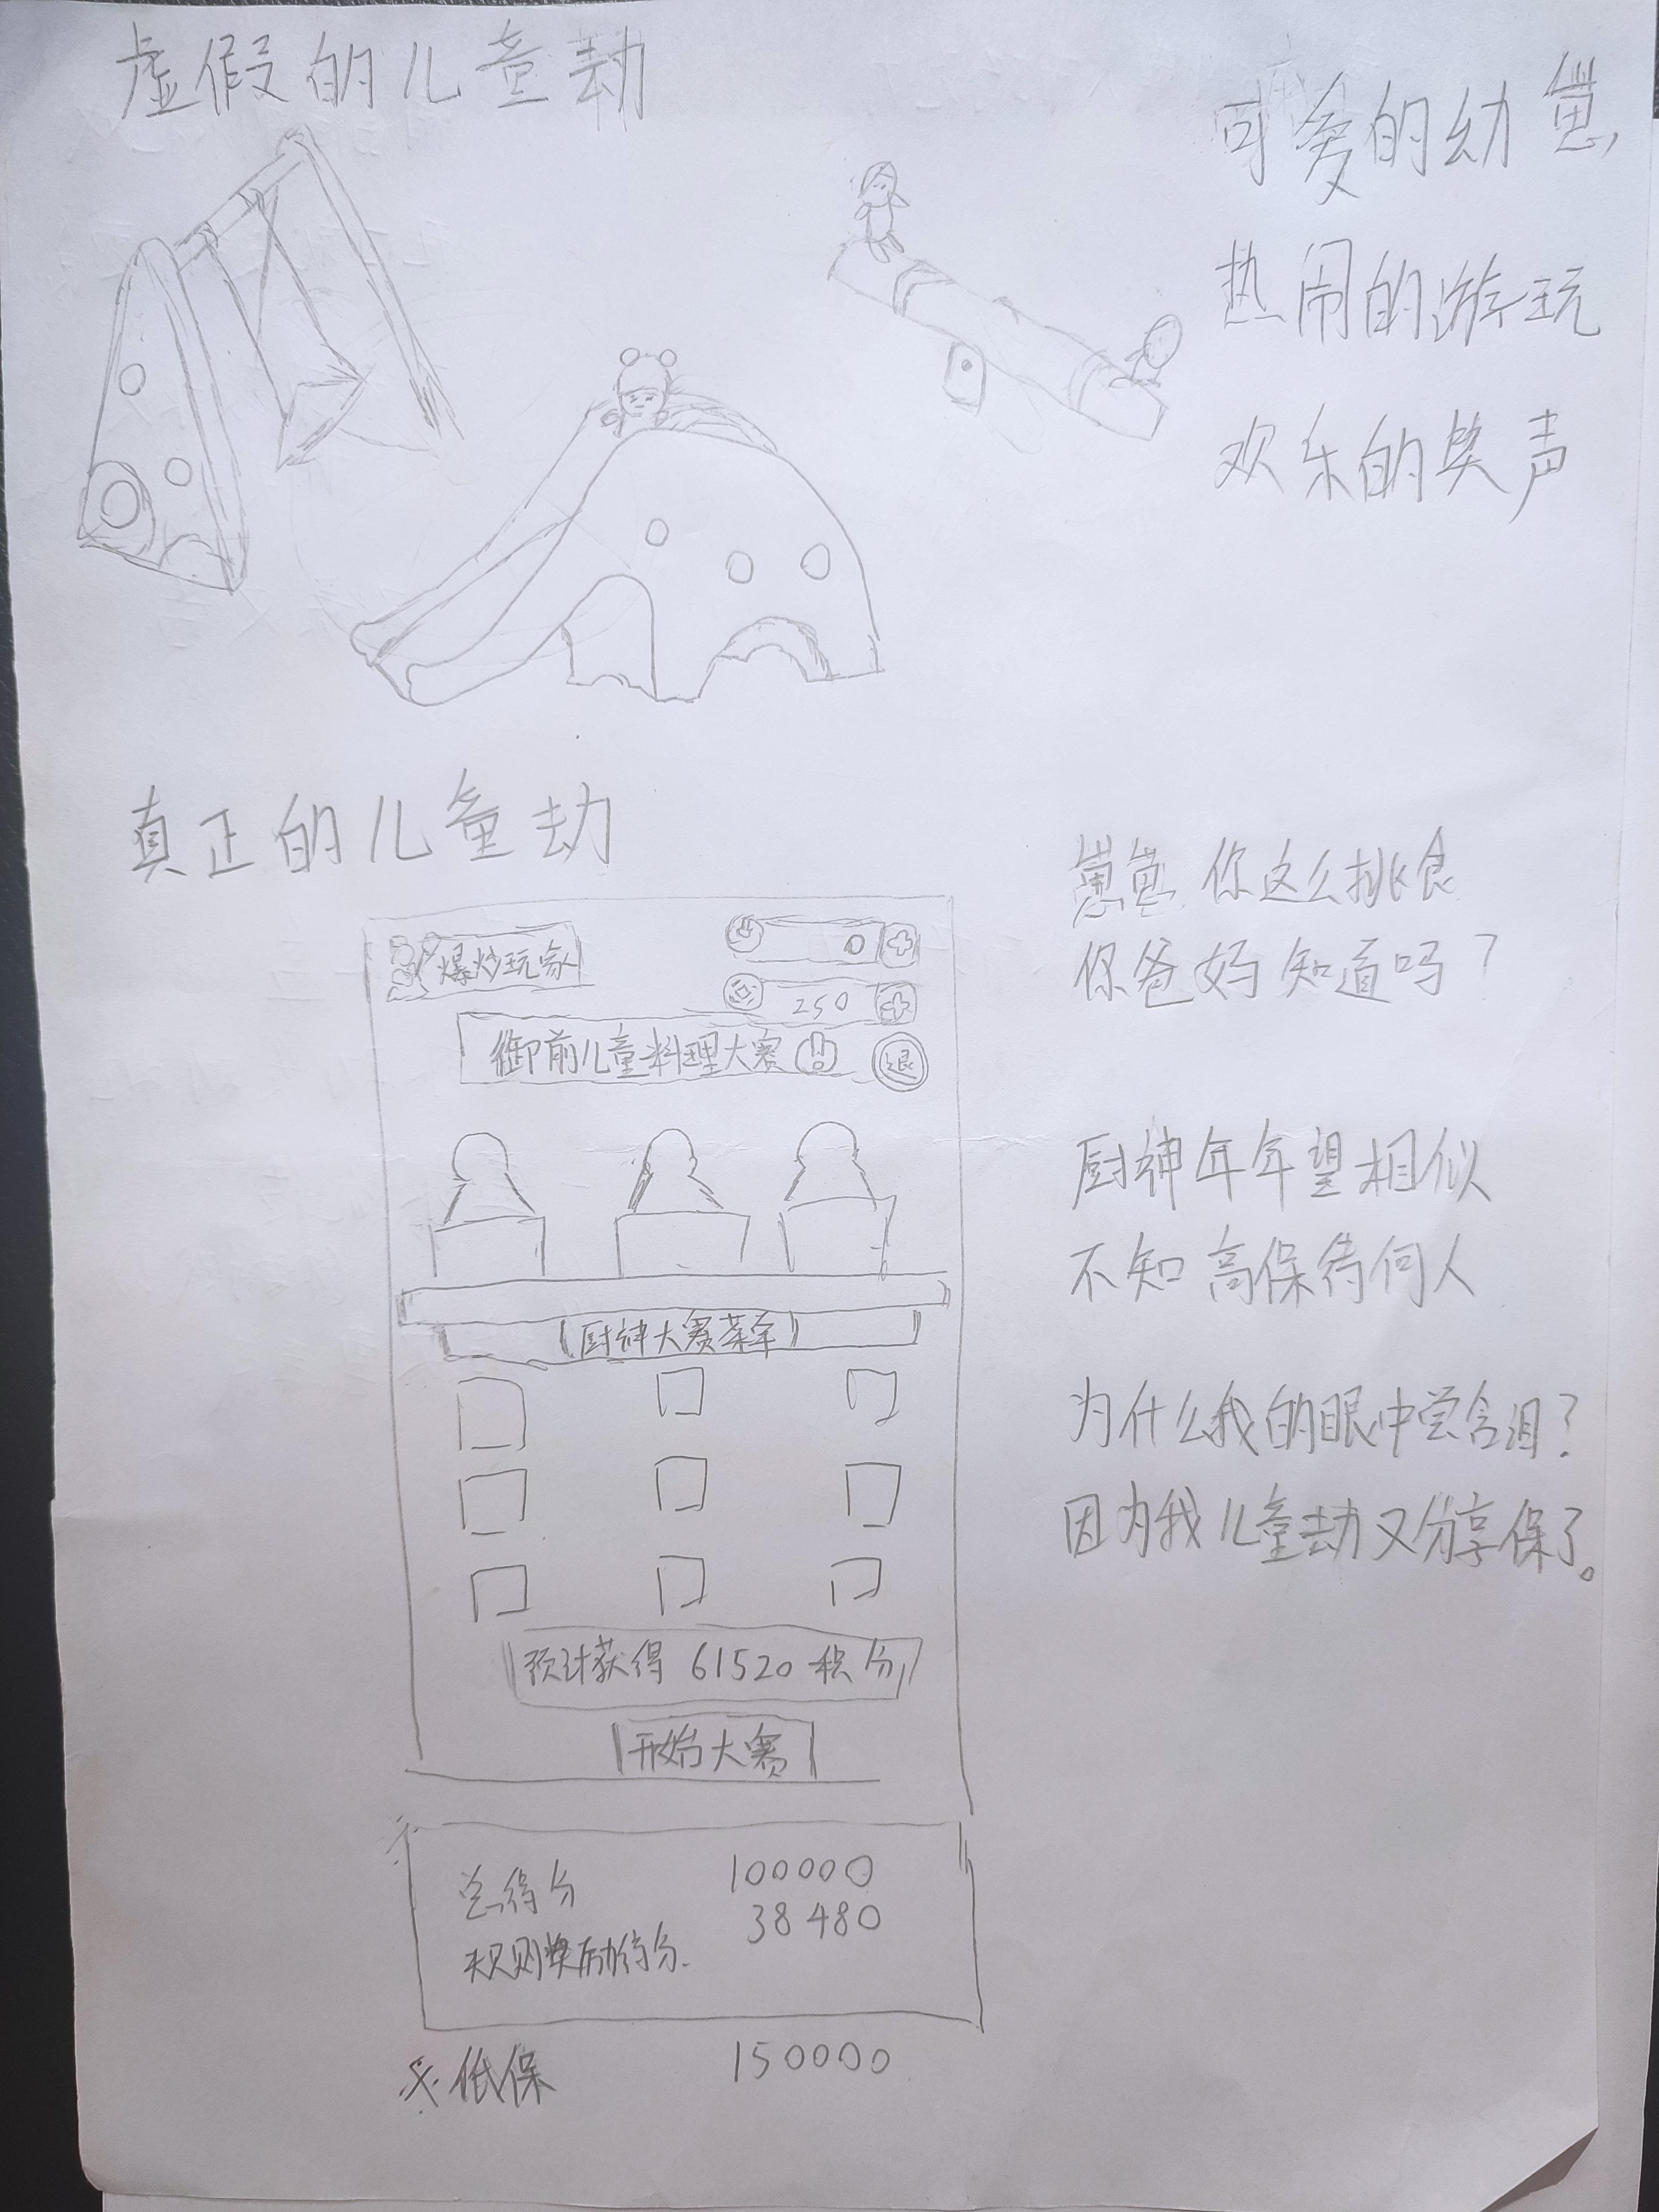 虚假的儿童劫
可爱的幼崽
热闹的游玩
欢乐的笑声
真正的儿童劫
崽崽 你这么挑食
你爸妈知道吗?
厨神年年望相似
不知高保待何人
为什么我的眼中常含泪?
因为我儿童劫又分享保了。
爆炒玩家
0
250
御前儿童料理大赛
退
厨神大赛菜单
预计获得 61520 积分
开始大赛
总得分 100000
规则奖励得分 38480
低保 150000